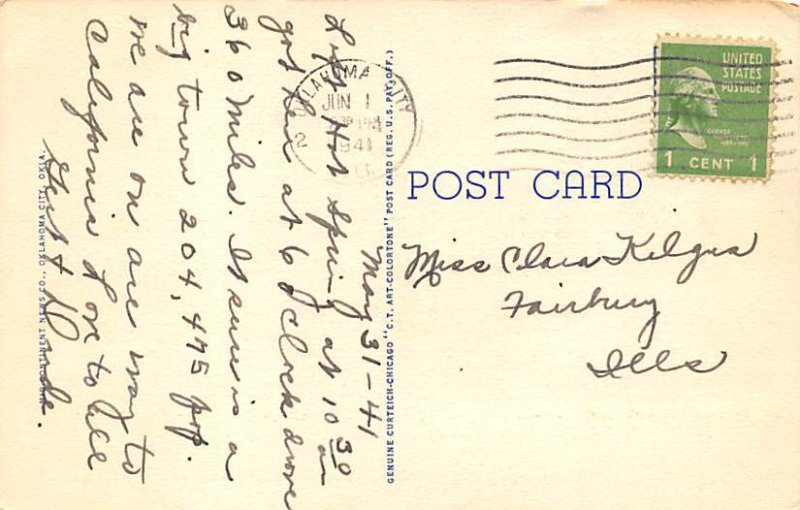 May 31-41
Left Hot Spring at 10 30 am
got here at 6 o'clock drove
360 Miles. It sure is a
big town 204,475 pop.
We are on are way to
California Love to all
Gert &
MID-CONTINENT NEWS CO., OKLAHOMA CITY, OKLA.
GENUINE CURTEICH-CHICAGO "C.T. ART-COLORTONE" POST CARD (REG. U.S. PAT. OFF.)
OKLAHOMA CITY
JUN 1
1941
UNITED
STATES
POSTAGE
GEORGE
1 CENT 1
POST CARD
Miss Clara Kilgus
Fairbury
Ills